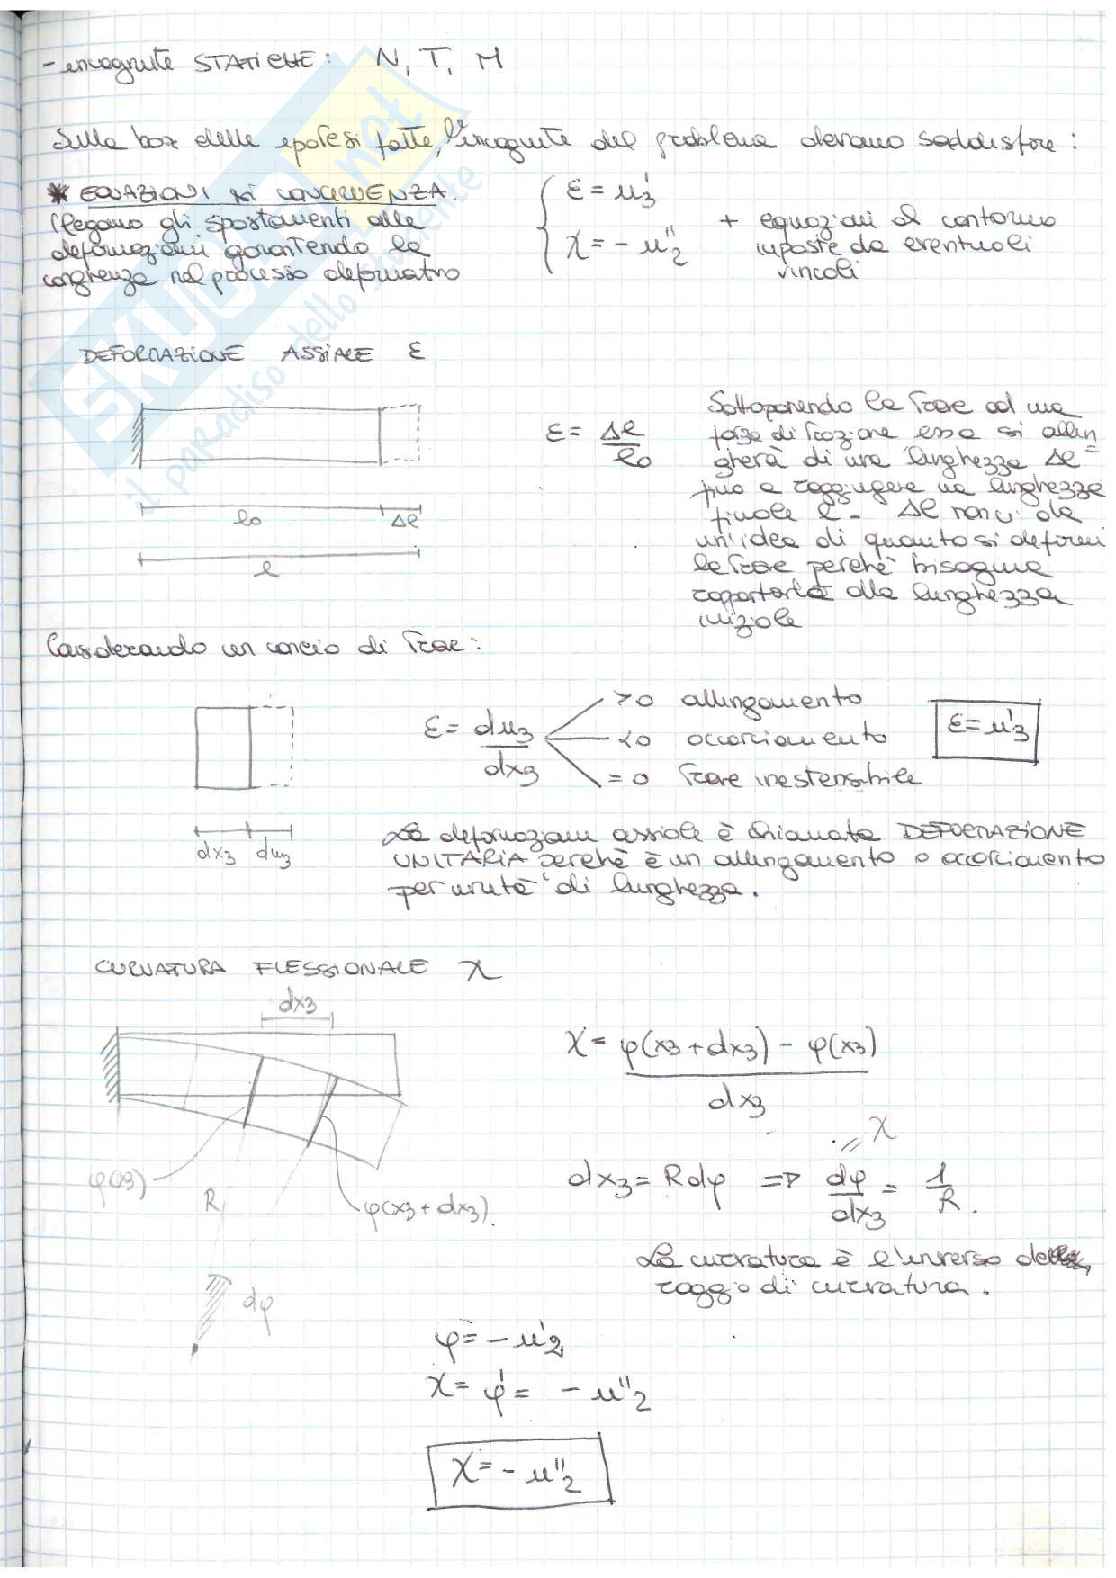 - incognite STATICHE: N, T, M
Sulla base delle ipotesi fatte, l'incognite del problema devono soddisfare:
* EQUAZIONI DI CONGRUENZA
(legano gli spostamenti alle
deformazioni garantendo la
congruenza nel processo deformativo
ε = u'3
χ = - u''2
+ equazioni al contorno
imposte da eventuali
vincoli
DEFORMAZIONE ASSIALE ε
ε = Δl / l0
l0 Δl
l
Sottoponendo la trave ad una
forza di trazione essa si allun
gherà di una lunghezza Δl
fino a raggiungere una lunghezza
finale l. Δl non ci dà
un'idea di quanto si deformi
la trave perchè bisogna
rapportarla alla lunghezza
iniziale
Considerando un concio di trave:
ε = du3 / dx3
>0 allungamento
<0 accorciamento
=0 trave inestensibile
ε = u'3
dx3 du3
La deformazione assiale è chiamata DEFORMAZIONE
UNITARIA perchè è un allungamento o accorciamento
per unità di lunghezza.
CURVATURA FLESSIONALE χ
dx3
φ(x3)
R
φ(x3+dx3)
dφ
χ = φ(x3+dx3) - φ(x3) / dx3
= χ
dx3 = Rdφ ⇒ dφ / dx3 = 1 / R.
La curvatura è l'inverso
raggio di curvatura.
φ = - u'2
χ = φ' = - u''2
χ = - u''2
SKUOLA.net
il paradiso dello studente